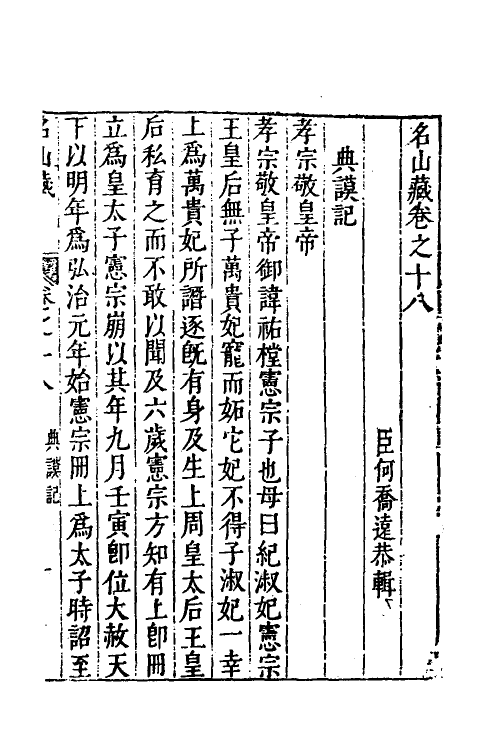 名山藏卷之十八
臣何喬遠恭輯
典謨記
孝宗敬皇帝
孝宗敬皇帝御諱祐樘憲宗子也母曰紀淑妃憲宗
王皇后無子萬貴妃寵而妬它妃不得子淑妃一幸
上爲萬貴妃所譖逐旣有身及生上周皇太后王皇
后私育之而不敢以聞及六歲憲宗方知有上卽冊
立爲皇太子憲宗崩以其年九月壬寅卽位大赦天
下以明年爲弘治元年始憲宗冊上爲太子時詔至
名山藏 卷之十八 典謨記 一